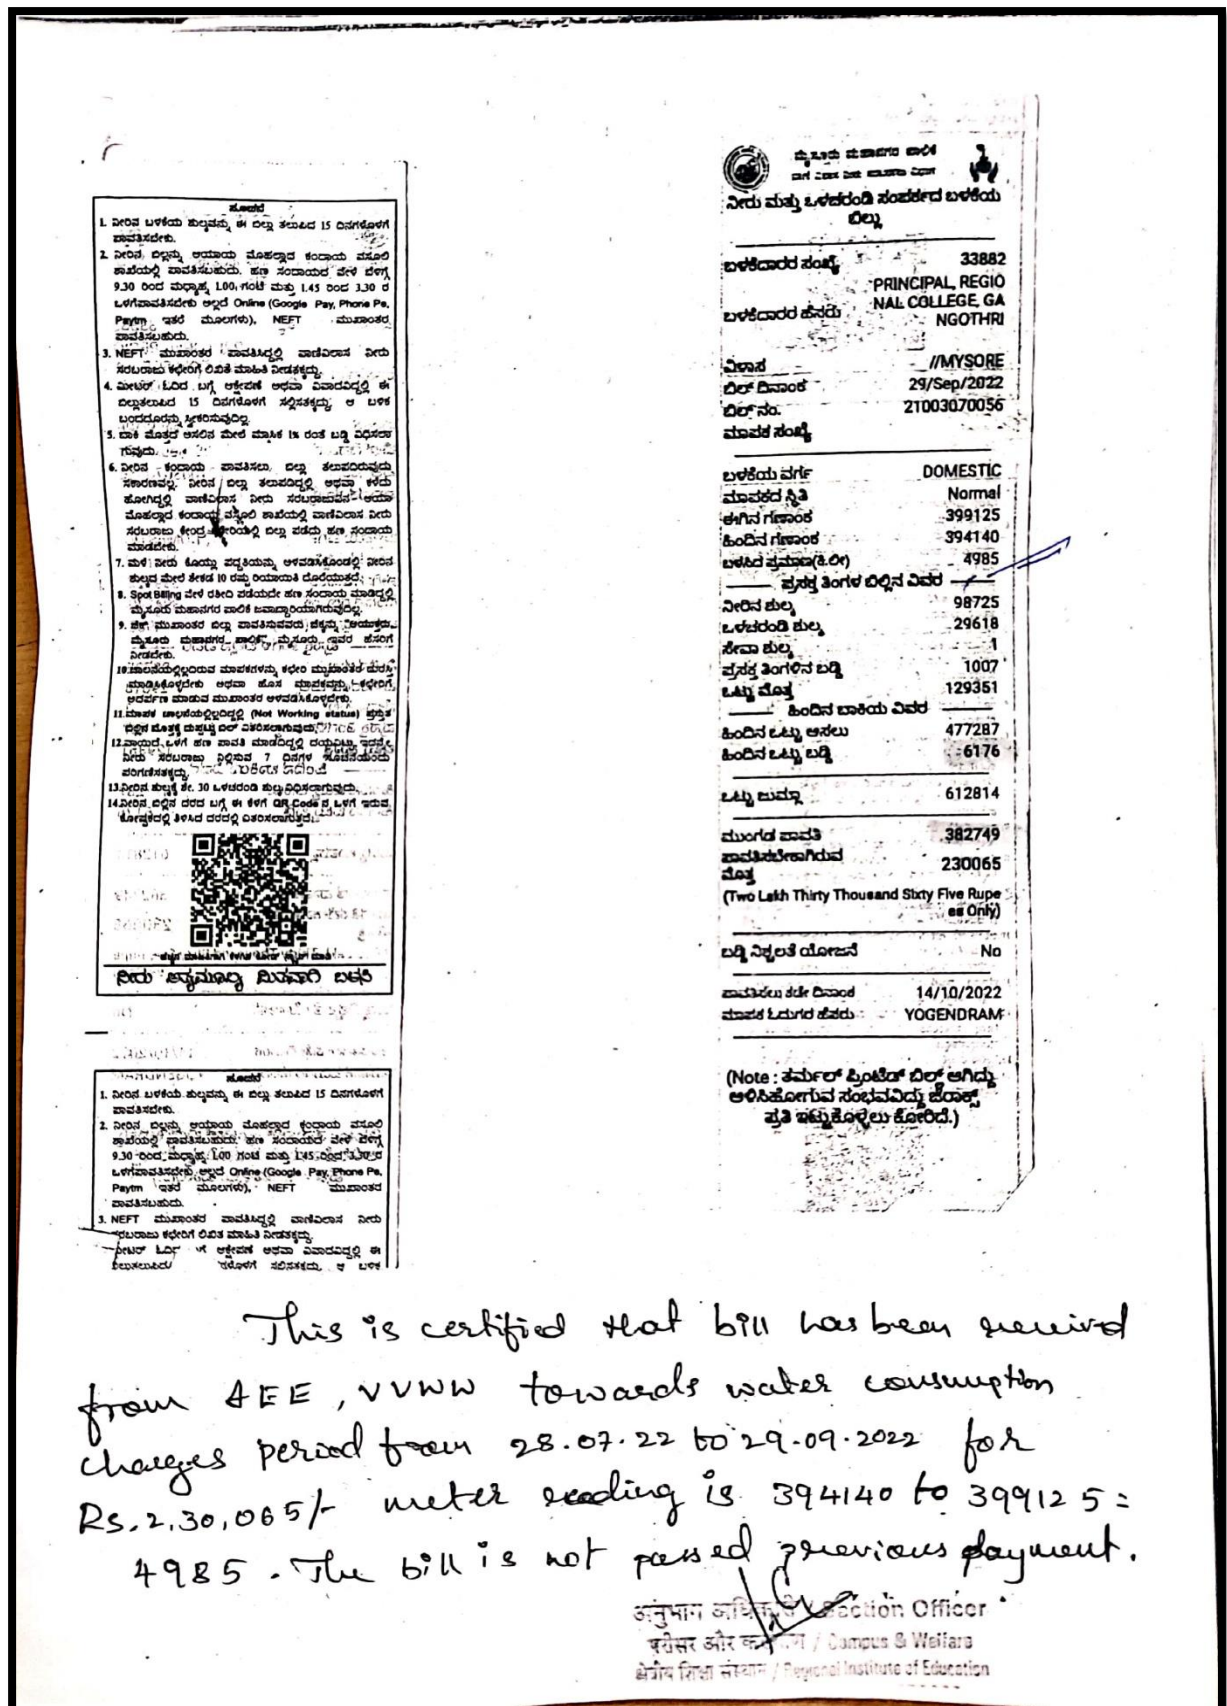 ಸೂಚನೆ
1. ನೀರಿನ ಬಳಕೆಯ ಶುಲ್ಕವನ್ನು ಈ ಬಿಲ್ಲು ತಲುಪಿದ 15 ದಿನಗಳೊಳಗೆ
ಪಾವತಿಸಬೇಕು.
2. ನೀರಿನ ಬಿಲ್ಲನ್ನು ಆಯಾಯ ಮೊಹಲ್ಲಾದ ಕಂದಾಯ ವಸೂಲಿ
ಶಾಖೆಯಲ್ಲಿ ಪಾವತಿಸಬಹುದು. ಹಣ ಸಂದಾಯದ ವೇಳೆ ಬೆಳಗ್ಗೆ
9.30 ರಿಂದ ಮಧ್ಯಾಹ್ನ 1.00 ಗಂಟೆ ಮತ್ತು 1.45 ರಿಂದ 3.30 ರ
ಒಳಗೆಪಾವತಿಸಬೇಕು ಅಲ್ಲದೆ Online (Google Pay, Phone Pe,
Paytm ಇತರೆ ಮೂಲಗಳು), NEFT ಮುಖಾಂತರ
ಪಾವತಿಸಬಹುದು.
3. NEFT ಮುಖಾಂತರ ಪಾವತಿಸಿದ್ದಲ್ಲಿ ವಾಣಿವಿಲಾಸ ನೀರು
ಸರಬರಾಜು ಕಛೇರಿಗೆ ಲಿಖಿತ ಮಾಹಿತಿ ನೀಡತಕ್ಕದ್ದು.
4. ಮೀಟರ್ ಓದಿದ ಬಗ್ಗೆ ಆಕ್ಷೇಪಣೆ ಅಥವಾ ವಿವಾದವಿದ್ದಲ್ಲಿ ಈ
ಬಿಲ್ಲುತಲುಪಿದ 15 ದಿನಗಳೊಳಗೆ ಸಲ್ಲಿಸತಕ್ಕದ್ದು, ಆ ಬಳಿಕ
ಬಂದದೂರನ್ನು ಸ್ವೀಕರಿಸುವುದಿಲ್ಲ.
5. ಬಾಕಿ ಮೊತ್ತದ ಅಸಲಿನ ಮೇಲೆ ಮಾಸಿಕ 1% ರಂತೆ ಬಡ್ಡಿ ವಿಧಿಸಲಾ
ಗುವುದು.
6. ನೀರಿನ ಕಂದಾಯ ಪಾವತಿಸಲು ಬಿಲ್ಲು ತಲುಪದಿರುವುದು
ಸಕಾರಣವಲ್ಲ. ನೀರಿನ ಬಿಲ್ಲು ತಲುಪದಿದ್ದಲ್ಲಿ ಅಥವಾ ಕಳೆದು
ಹೋಗಿದ್ದಲ್ಲಿ ವಾಣಿವಿಲಾಸ ನೀರು ಸರಬರಾಜುವಿನ ಆಯಾ
ಮೊಹಲ್ಲಾದ ಕಂದಾಯ ವಸೂಲಿ ಶಾಖೆಯಲ್ಲಿ ವಾಣಿವಿಲಾಸ ನೀರು
ಸರಬರಾಜು ಕೇಂದ್ರ ಬಿಲ್ಲು ಪಡೆದು ಹಣ ಸಂದಾಯ
ಮಾಡಬೇಕು.
7. ಮಳೆ ನೀರು ಕೊಯ್ಲು ಪದ್ಧತಿಯನ್ನು ಅಳವಡಿಸಿಕೊಂಡಲ್ಲಿ ನೀರಿನ
ಶುಲ್ಕದ ಮೇಲೆ ಶೇಕಡ 10 ರಷ್ಟು ರಿಯಾಯಿತಿ ದೊರೆಯುತ್ತದೆ.
8. Spot Billing ವೇಳೆ ರಶೀದಿ ಪಡೆಯದೇ ಹಣ ಸಂದಾಯ ಮಾಡಿದ್ದಲ್ಲಿ
ಮೈಸೂರು ಮಹಾನಗರ ಪಾಲಿಕೆ ಜವಾಬ್ದಾರಿಯಾಗಿರುವುದಿಲ್ಲ.
9. ಚೆಕ್ ಮುಖಾಂತರ ಬಿಲ್ಲು ಪಾವತಿಸುವವರು ಚೆಕ್ಕನ್ನು "ಆಯುಕ್ತರು,
ಮೈಸೂರು ಮಹಾನಗರ ಪಾಲಿಕೆ" ಮೈಸೂರು ಇವರ ಹೆಸರಿಗೆ
ನೀಡಬೇಕು.
10. ಚಾಲನೆಯಲ್ಲಿಲ್ಲದಿರುವ ಮಾಪಕಗಳನ್ನು ಕಛೇರಿ ಮುಖಾಂತರ ದುರಸ್ತಿ
ಮಾಡಿಸಿಕೊಳ್ಳಬೇಕು ಅಥವಾ ಹೊಸ ಮಾಪಕವನ್ನು ಕಛೇರಿಗೆ
ಮಾಡುವ ಮುಖಾಂತರ ಅಳವಡಿಸಿಕೊಳ್ಳಬೇಕು.
11. ಮಾಪಕ ಚಾಲನೆಯಲ್ಲಿಲ್ಲದಿದ್ದಲ್ಲಿ (Not Working status) ಪ್ರಸ್ತುತ
ಬಿಲ್ಲಿನ ಮೊತ್ತಕ್ಕೆ ದುಪ್ಪಟ್ಟು ಬಿಲ್ ವಿತರಿಸಲಾಗುವುದು.
12. ವಾಯಿದೆ ಒಳಗೆ ಹಣ ಪಾವತಿ ಮಾಡದಿದ್ದಲ್ಲಿ ದಯವಿಟ್ಟು ಇದನ್ನೇ
ನೀರು ಸರಬರಾಜು ನಿಲ್ಲಿಸುವ 7 ದಿನಗಳ ಸೂಚನೆಯೆಂದು
ಪರಿಗಣಿಸತಕ್ಕದ್ದು.
13. ನೀರಿನ ಶುಲ್ಕಕ್ಕೆ ಶೇ. 30 ಒಳಚರಂಡಿ ಶುಲ್ಕ ವಿಧಿಸಲಾಗುವುದು.
14. ನೀರಿನ ಬಿಲ್ಲಿನ ದರದ ಬಗ್ಗೆ ಈ ಕೆಳಗೆ QR Code ನ ಒಳಗೆ ಇರುವ
ಕೋಷ್ಟಕದಲ್ಲಿ ತಿಳಿಸಿದ ದರದಲ್ಲಿ ವಿತರಿಸಲಾಗುತ್ತದೆ.
ನೀರು ಅತ್ಯಮೂಲ್ಯ ಮಿತವಾಗಿ ಬಳಸಿ
ಸೂಚನೆ
1. ನೀರಿನ ಬಳಕೆಯ ಶುಲ್ಕವನ್ನು ಈ ಬಿಲ್ಲು ತಲುಪಿದ 15 ದಿನಗಳೊಳಗೆ
ಪಾವತಿಸಬೇಕು.
2. ನೀರಿನ ಬಿಲ್ಲನ್ನು ಆಯಾಯ ಮೊಹಲ್ಲಾದ ಕಂದಾಯ ವಸೂಲಿ
ಶಾಖೆಯಲ್ಲಿ ಪಾವತಿಸಬಹುದು. ಹಣ ಸಂದಾಯದ ವೇಳೆ ಬೆಳಗ್ಗೆ
9.30 ರಿಂದ ಮಧ್ಯಾಹ್ನ 1.00 ಗಂಟೆ ಮತ್ತು 1.45 ರಿಂದ 3.30 ರ
ಒಳಗೆಪಾವತಿಸಬೇಕು ಅಲ್ಲದೆ Online (Google Pay, Phone Pe,
Paytm ಇತರೆ ಮೂಲಗಳು), NEFT ಮುಖಾಂತರ
ಪಾವತಿಸಬಹುದು.
3. NEFT ಮುಖಾಂತರ ಪಾವತಿಸಿದ್ದಲ್ಲಿ ವಾಣಿವಿಲಾಸ ನೀರು
ಸರಬರಾಜು ಕಛೇರಿಗೆ ಲಿಖಿತ ಮಾಹಿತಿ ನೀಡತಕ್ಕದ್ದು.
ಓದಿದ ಆಕ್ಷೇಪಣೆ ಅಥವಾ ವಿವಾದವಿದ್ದಲ್ಲಿ ಈ
ಸಲ್ಲಿಸತಕ್ಕದ್ದು, ಆ ಬಳಿಕ
ಮೈಸೂರು ಮಹಾನಗರ ಪಾಲಿಕೆ
ನೀರು ಮತ್ತು ಒಳಚರಂಡಿ ಸಂಪರ್ಕದ ಬಳಕೆಯ
ಬಿಲ್ಲು
ಬಳಕೆದಾರರ ಸಂಖ್ಯೆ 33882
ಬಳಕೆದಾರರ ಹೆಸರು PRINCIPAL, REGIO
NAL COLLEGE, GA
NGOTHRI
ವಿಳಾಸ //MYSORE
ಬಿಲ್ ದಿನಾಂಕ 29/Sep/2022
ಬಿಲ್ ನಂ. 21003070056
ಮಾಪಕ ಸಂಖ್ಯೆ
ಬಳಕೆಯ ವರ್ಗ DOMESTIC
ಮಾಪಕದ ಸ್ಥಿತಿ Normal
ಈಗಿನ ಗಣಾಂಕ 399125
ಹಿಂದಿನ ಗಣಾಂಕ 394140
ಬಳಸಿದ ಪ್ರಮಾಣ(ಕಿ.ಲೀ) 4985
ಪ್ರಸಕ್ತ ತಿಂಗಳ ಬಿಲ್ಲಿನ ವಿವರ
ನೀರಿನ ಶುಲ್ಕ 98725
ಒಳಚರಂಡಿ ಶುಲ್ಕ 29618
ಸೇವಾ ಶುಲ್ಕ 1
ಪ್ರಸಕ್ತ ತಿಂಗಳಿನ ಬಡ್ಡಿ 1007
ಒಟ್ಟು ಮೊತ್ತ 129351
ಹಿಂದಿನ ಬಾಕಿಯ ವಿವರ
ಹಿಂದಿನ ಒಟ್ಟು ಅಸಲು 477287
ಹಿಂದಿನ ಒಟ್ಟು ಬಡ್ಡಿ 6176
ಒಟ್ಟು ಜುಮ್ಲಾ 612814
ಮುಂಗಡ ಪಾವತಿ 382749
ಪಾವತಿಸಬೇಕಾಗಿರುವ
ಮೊತ್ತ 230065
(Two Lakh Thirty Thousand Sixty Five Rupe
es Only)
ಬಡ್ಡಿ ನಿಶ್ಚಲತೆ ಯೋಜನೆ No
ಪಾವತಿಸಲು ಕಡೇ ದಿನಾಂಕ 14/10/2022
ಮಾಪಕ ಓದುಗರ ಹೆಸರು YOGENDRAM
(Note : ತರ್ಮಲ್ ಪ್ರಿಂಟೆಡ್ ಬಿಲ್ ಆಗಿದ್ದು
ಅಳಿಸಿಹೋಗುವ ಸಂಭವವಿದ್ದು ಜೆರಾಕ್ಸ್
ಪ್ರತಿ ಇಟ್ಟುಕೊಳ್ಳಲು ಕೋರಿದೆ.)
This is certified that bill has been received
from AEE, VVWW towards water consumption
charges period from 28.07.22 to 29.09.2022 for
Rs.2,30,065/- meter reading is 394140 to 399125=
4985. The bill is not passed previous payment.
अनुभाग अधिकारी / Section Officer
परिसर और कल्याण / Campus & Welfare
क्षेत्रीय शिक्षा संस्थान / Regional Institute of Education